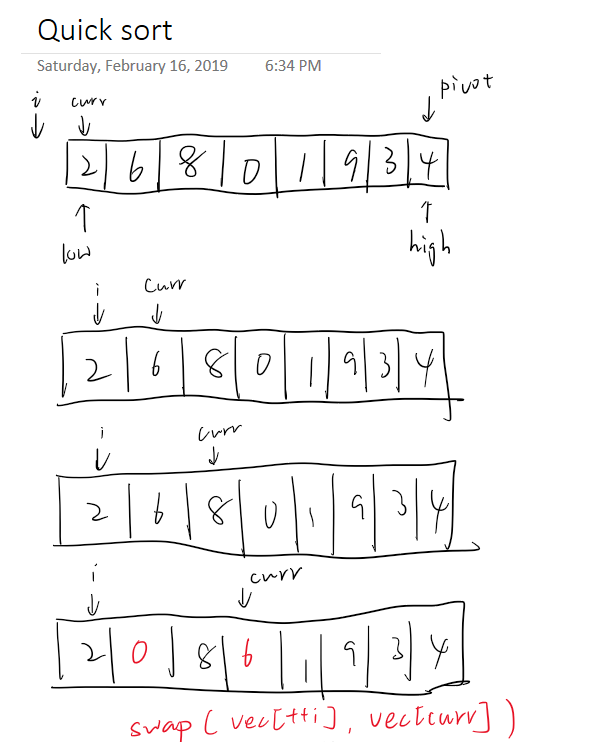 Quick sort
Saturday, February 16, 2019 6:34 PM
i curr pivot
2 6 8 0 1 9 3 4
low high
i curr
2 6 8 0 1 9 3 4
i curr
2 6 8 0 1 9 3 4
i curr
2 0 8 6 1 9 3 4
swap ( vec[++i], vec[curr] )